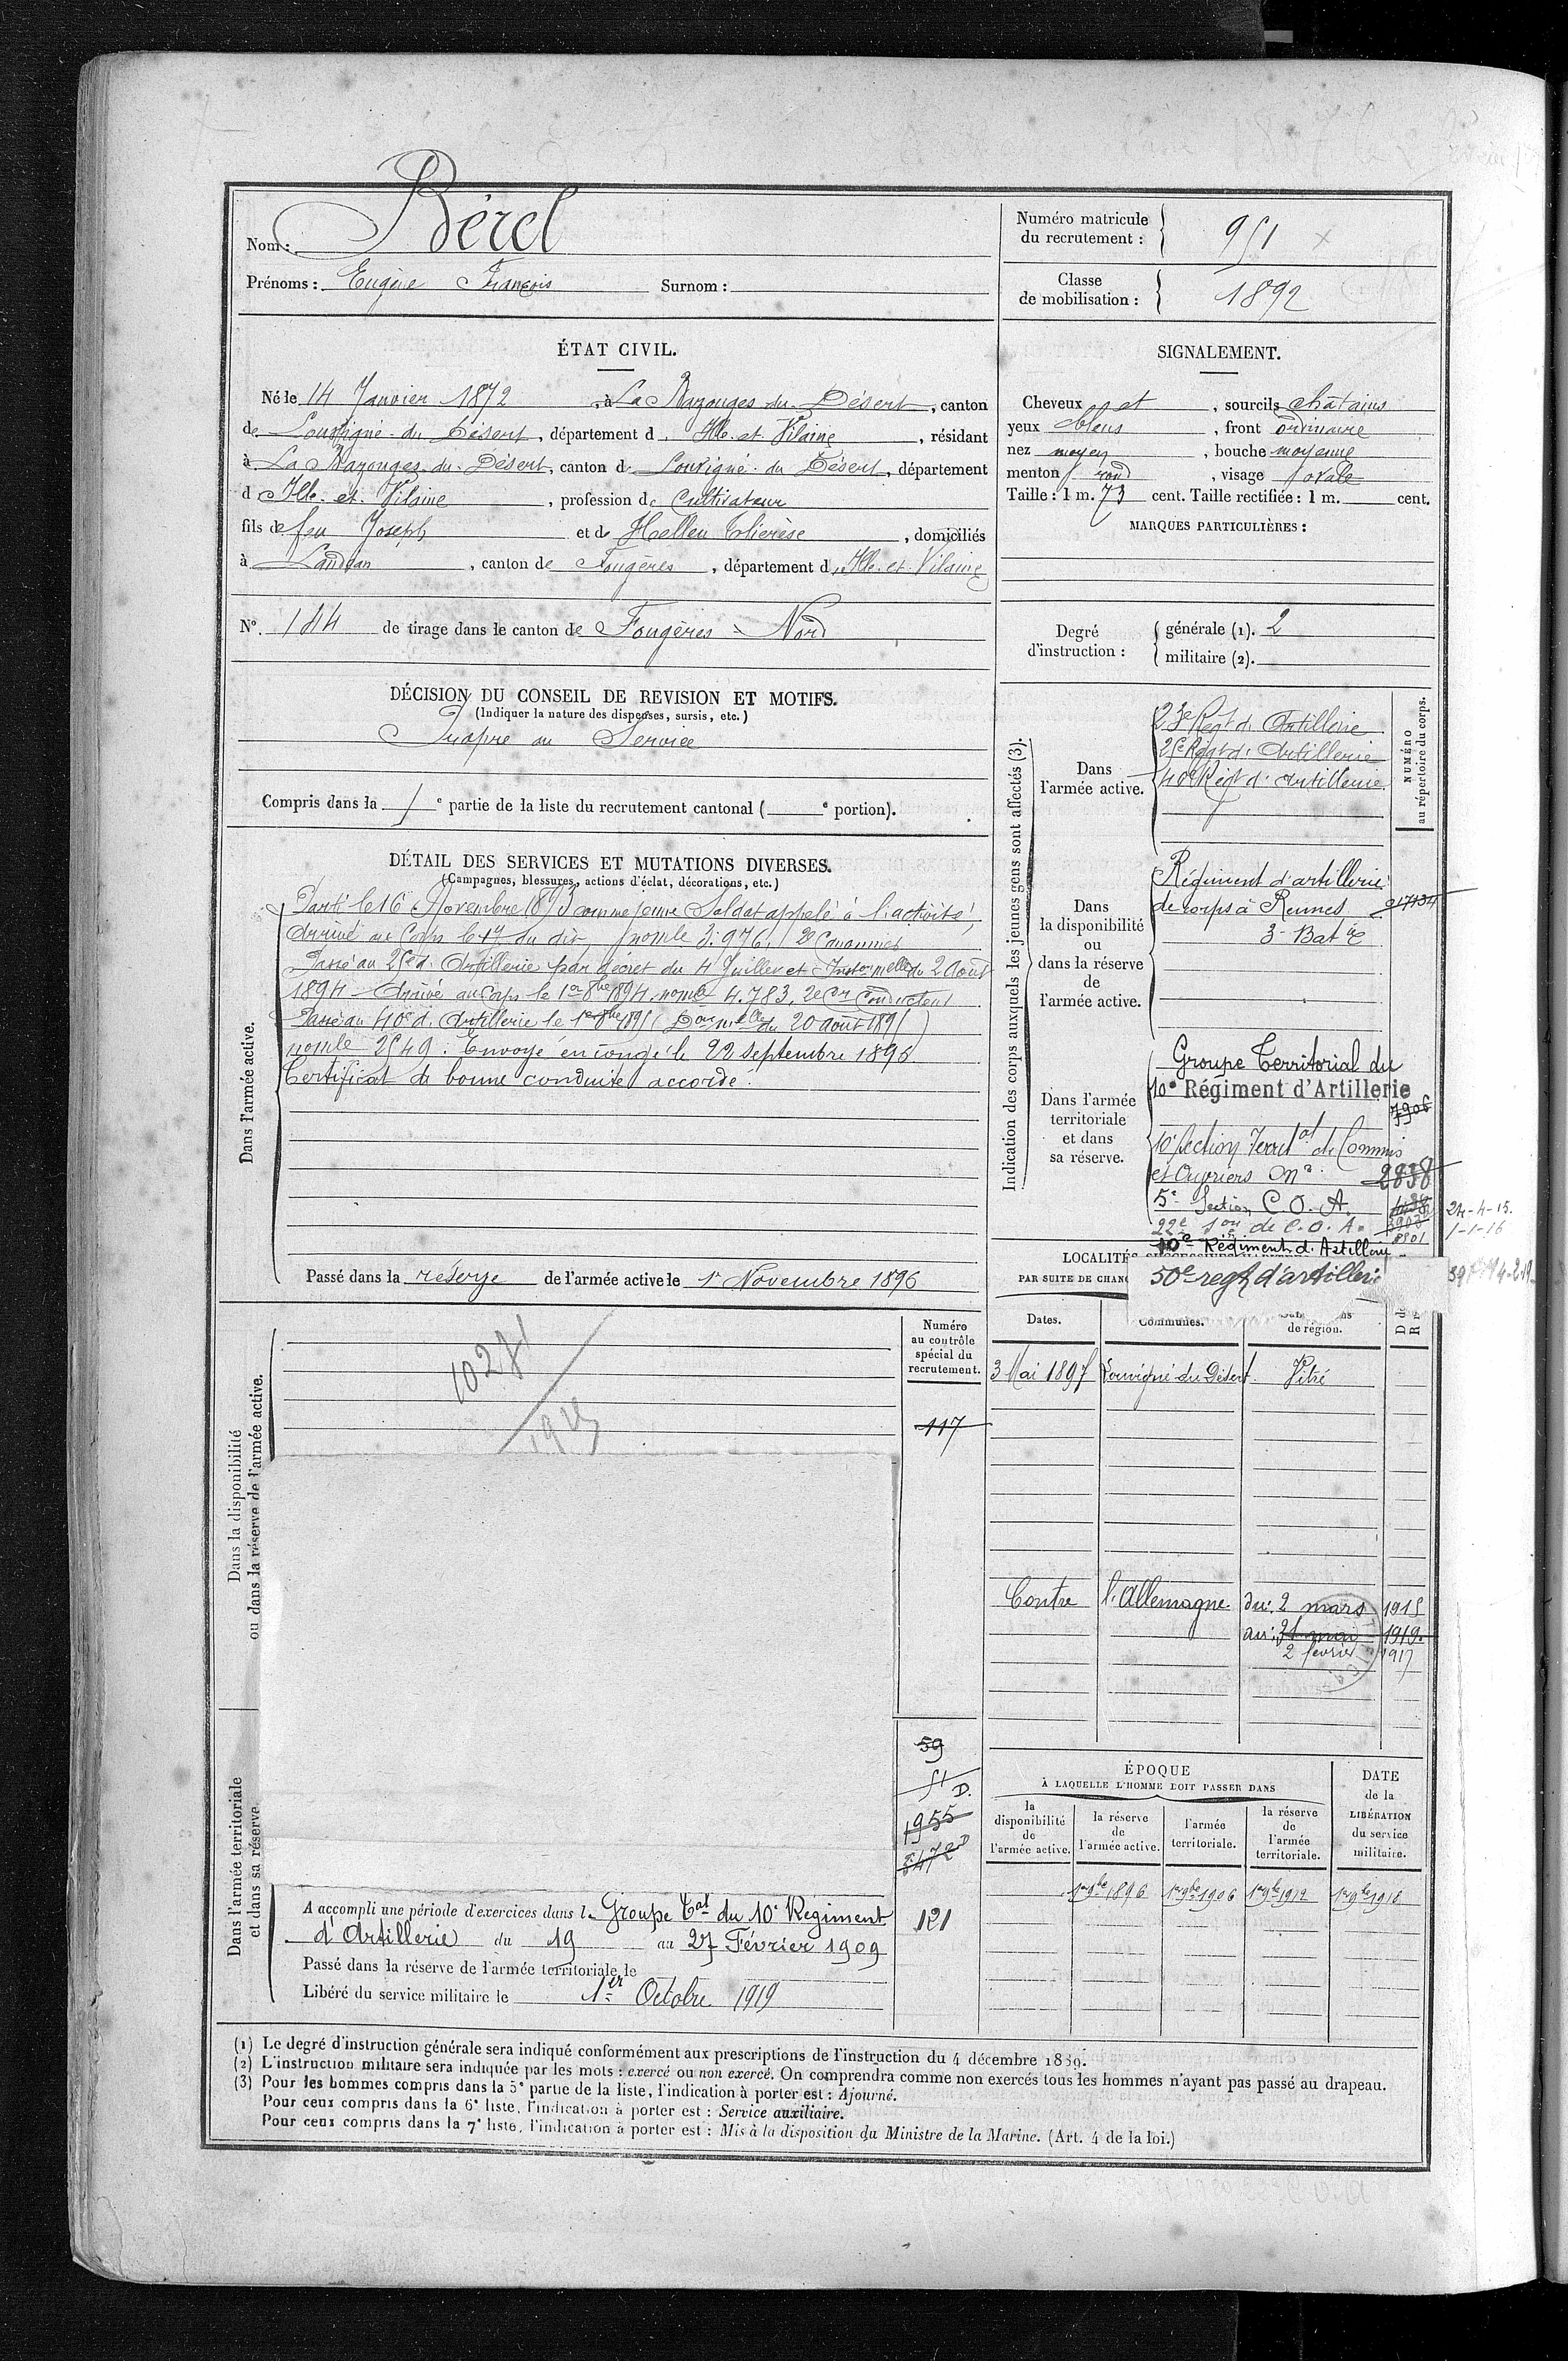 Nom : Bérel
Prénoms : Eugène François Surnom :
Numéro matricule
du recrutement : 951
Classe
de mobilisation : 1892
ÉTAT CIVIL.
Né le 14 Janvier 1872, à La Bazouges du Désert, canton
de Louvigné du Désert, département d Ille et Vilaine, résidant
à La Bazouges du Désert, canton d Louvigné du Désert, département
d Ille et Vilaine, profession de Cultivateur
fils de feu Joseph et de Helleu Thérèse, domiciliés
à Landéan, canton de Fougères, département d Ille et Vilaine
N° 184 de tirage dans le canton de Fougères - Nord
SIGNALEMENT.
Cheveux et, sourcils châtains
yeux bleus, front ordinaire
nez moyen, bouche moyenne
menton rond, visage ovale
Taille : 1 m. 73 cent. Taille rectifiée : 1 m. cent.
MARQUES PARTICULIÈRES :
Degré
d'instruction :
générale (1). 2
militaire (2).
DÉCISION DU CONSEIL DE REVISION ET MOTIFS.
(Indiquer la nature des dispenses, sursis, etc.)
Propre au Service
Compris dans la 1 e partie de la liste du recrutement cantonal ( e portion).
DÉTAIL DES SERVICES ET MUTATIONS DIVERSES.
(Campagnes, blessures, actions d'éclat, décorations, etc.)
Dans l'armée active.
Parti le 16 Novembre 1893 comme jeune Soldat appelé à l'activité,
Arrivé au Corps le 17 du dit, nomle 3.976, 2e Canonnier
Passé au 25e d'Artillerie par décret du 4 Juillet et Inston melle du 2 Août
1894 Arrivé au Corps le 1er 8bre 1894 nomle 4.783. 2e Cer Conducteur
Passé au 40e d'Artillerie le 1er 8bre 1895 (Don melle du 20 août 1895)
nomle 2549. Envoyé en congé le 22 septembre 1896
Certificat de bonne conduite accordé.
Passé dans la réserve de l'armée active le 1er Novembre 1896
Indication des corps auxquels les jeunes gens sont affectés (3).
NUMÉRO
au répertoire du corps.
Dans
l'armée active.
23e Régt d'Artillerie
25e Régt d'Artillerie
40e Régt d'Artillerie
Dans
la disponibilité
ou
dans la réserve
de
l'armée active.
Régiment d'artillerie
de corps à Rennes
3e Batie
Dans l'armée
territoriale
et dans
sa réserve.
Groupe Territorial du
10e Régiment d'Artillerie
7906
10e Section Territal de Commis
et Ouvriers Mre 2838
5e Section C.O.A.
24-4-15.
22e Son de C.O.A. 3902
1-1-16
10e Régiment d'Artillerie 8801
50e regt d'artillerie
LOCALITÉS
PAR SUITE DE CHANG
Dates. Communes. de région.
3 Mai 1897 Louvigné du Désert Vitré
Contre l'Allemagne du : 2 mars 1915
au : 31 mai 1919.
2 février 1917
Dans la disponibilité
ou dans la réserve de l'armée active.
Numéro
au contrôle
spécial du
recrutement.
117
59
51 D.
1955
8472 D
121
Dans l'armée territoriale
et dans sa réserve.
A accompli une période d'exercices dans le Groupe Tal du 10e Régiment
d'Artillerie du 19 au 27 Février 1909
Passé dans la réserve de l'armée territoriale le
Libéré du service militaire le 1er Octobre 1919
ÉPOQUE
À LAQUELLE L'HOMME DOIT PASSER DANS
la
disponibilité
de
l'armée active.
la réserve
de
l'armée active.
l'armée
territoriale.
la réserve
de
l'armée
territoriale.
DATE
de la
LIBÉRATION
du service
militaire.
1er 9bre 1896 1er 9bre 1906 1er 9bre 1912 1er 9bre 1918
(1) Le degré d'instruction générale sera indiqué conformément aux prescriptions de l'instruction du 4 décembre 1889.
(2) L'instruction militaire sera indiquée par les mots : exercé ou non exercé. On comprendra comme non exercés tous les hommes n'ayant pas passé au drapeau.
(3) Pour les hommes compris dans la 5e partie de la liste, l'indication à porter est : Ajourné.
Pour ceux compris dans la 6e liste, l'indication à porter est : Service auxiliaire.
Pour ceux compris dans la 7e liste, l'indication à porter est : Mis à la disposition du Ministre de la Marine. (Art. 4 de la loi.)